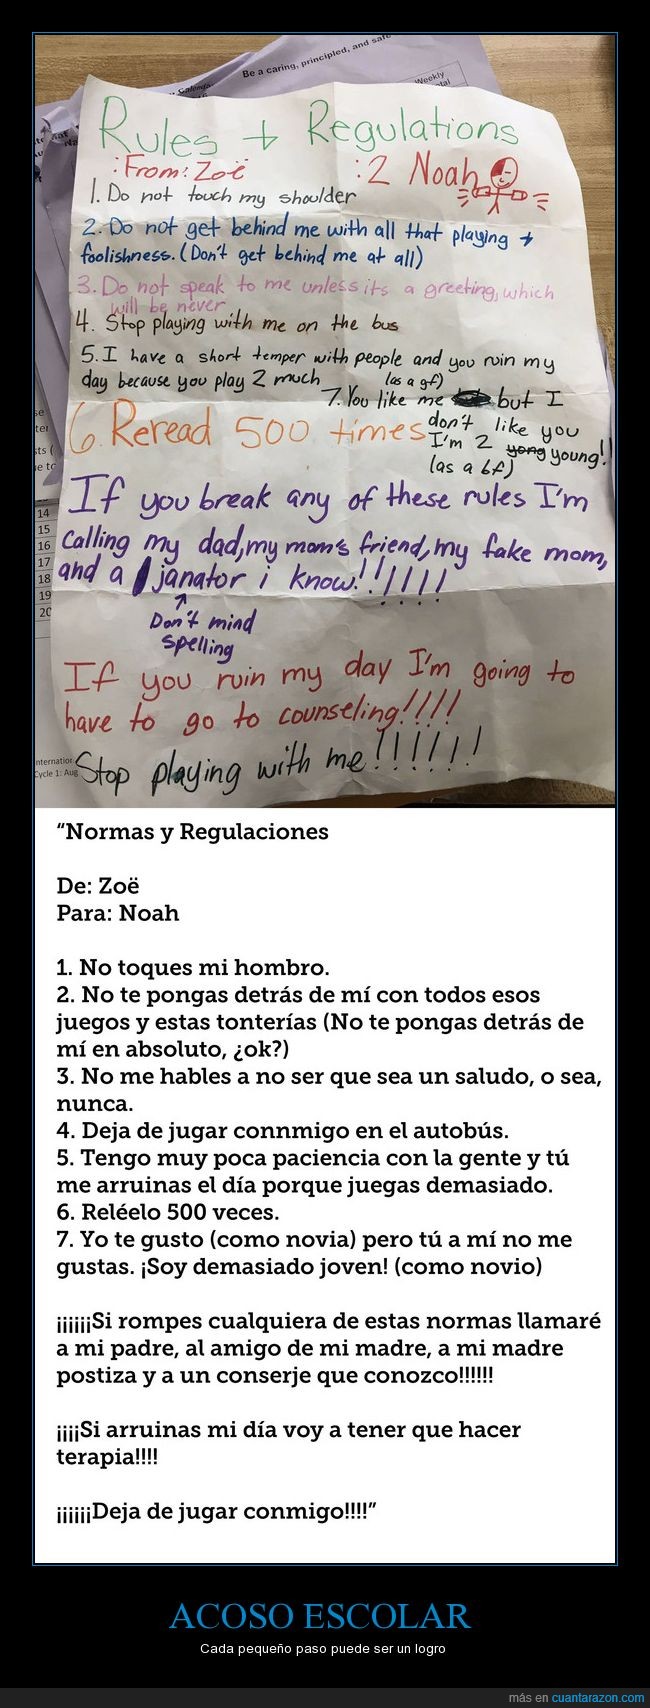 Be a caring, principled, and safe
Calendar
Weekly
Rules + Regulations
:From: Zoë :2 Noah
1. Do not touch my shoulder
2. Do not get behind me with all that playing +
foolishness. (Don't get behind me at all)
3. Do not speak to me unless its a greeting, which
will be never
4. Stop playing with me on the bus
5. I have a short temper with people and you ruin my
day because you play 2 much
(as a gf)
7. You like me but I
don't like you
6. Reread 500 times
I'm 2 yong young!!
(as a bf)
If you break any of these rules I'm
calling my dad, my mom's friend, my fake mom,
and a janator i know!!!!!!!
Don't mind
spelling
If you ruin my day I'm going to
have to go to counseling!!!!
Stop playing with me!!!!!!!
14
15
16
17
18
19
20
Cycle 1: Aug
“Normas y Regulaciones
De: Zoë
Para: Noah
1. No toques mi hombro.
2. No te pongas detrás de mí con todos esos
juegos y estas tonterías (No te pongas detrás de
mí en absoluto, ¿ok?)
3. No me hables a no ser que sea un saludo, o sea,
nunca.
4. Deja de jugar connmigo en el autobús.
5. Tengo muy poca paciencia con la gente y tú
me arruinas el día porque juegas demasiado.
6. Reléelo 500 veces.
7. Yo te gusto (como novia) pero tú a mí no me
gustas. ¡Soy demasiado joven! (como novio)
¡¡¡¡¡¡Si rompes cualquiera de estas normas llamaré
a mi padre, al amigo de mi madre, a mi madre
postiza y a un conserje que conozco!!!!!!
¡¡¡¡Si arruinas mi día voy a tener que hacer
terapia!!!!
¡¡¡¡¡¡Deja de jugar conmigo!!!!”
ACOSO ESCOLAR
Cada pequeño paso puede ser un logro
más en cuantarazon.com